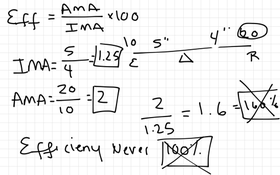 Eff = AMA/IMA × 100
IMA = 5/4 = 1.25
10 5" 4" 20
E Δ R
AMA = 20/10 = 2
2/1.25 = 1.6 = 160%
Efficieny Never 100%